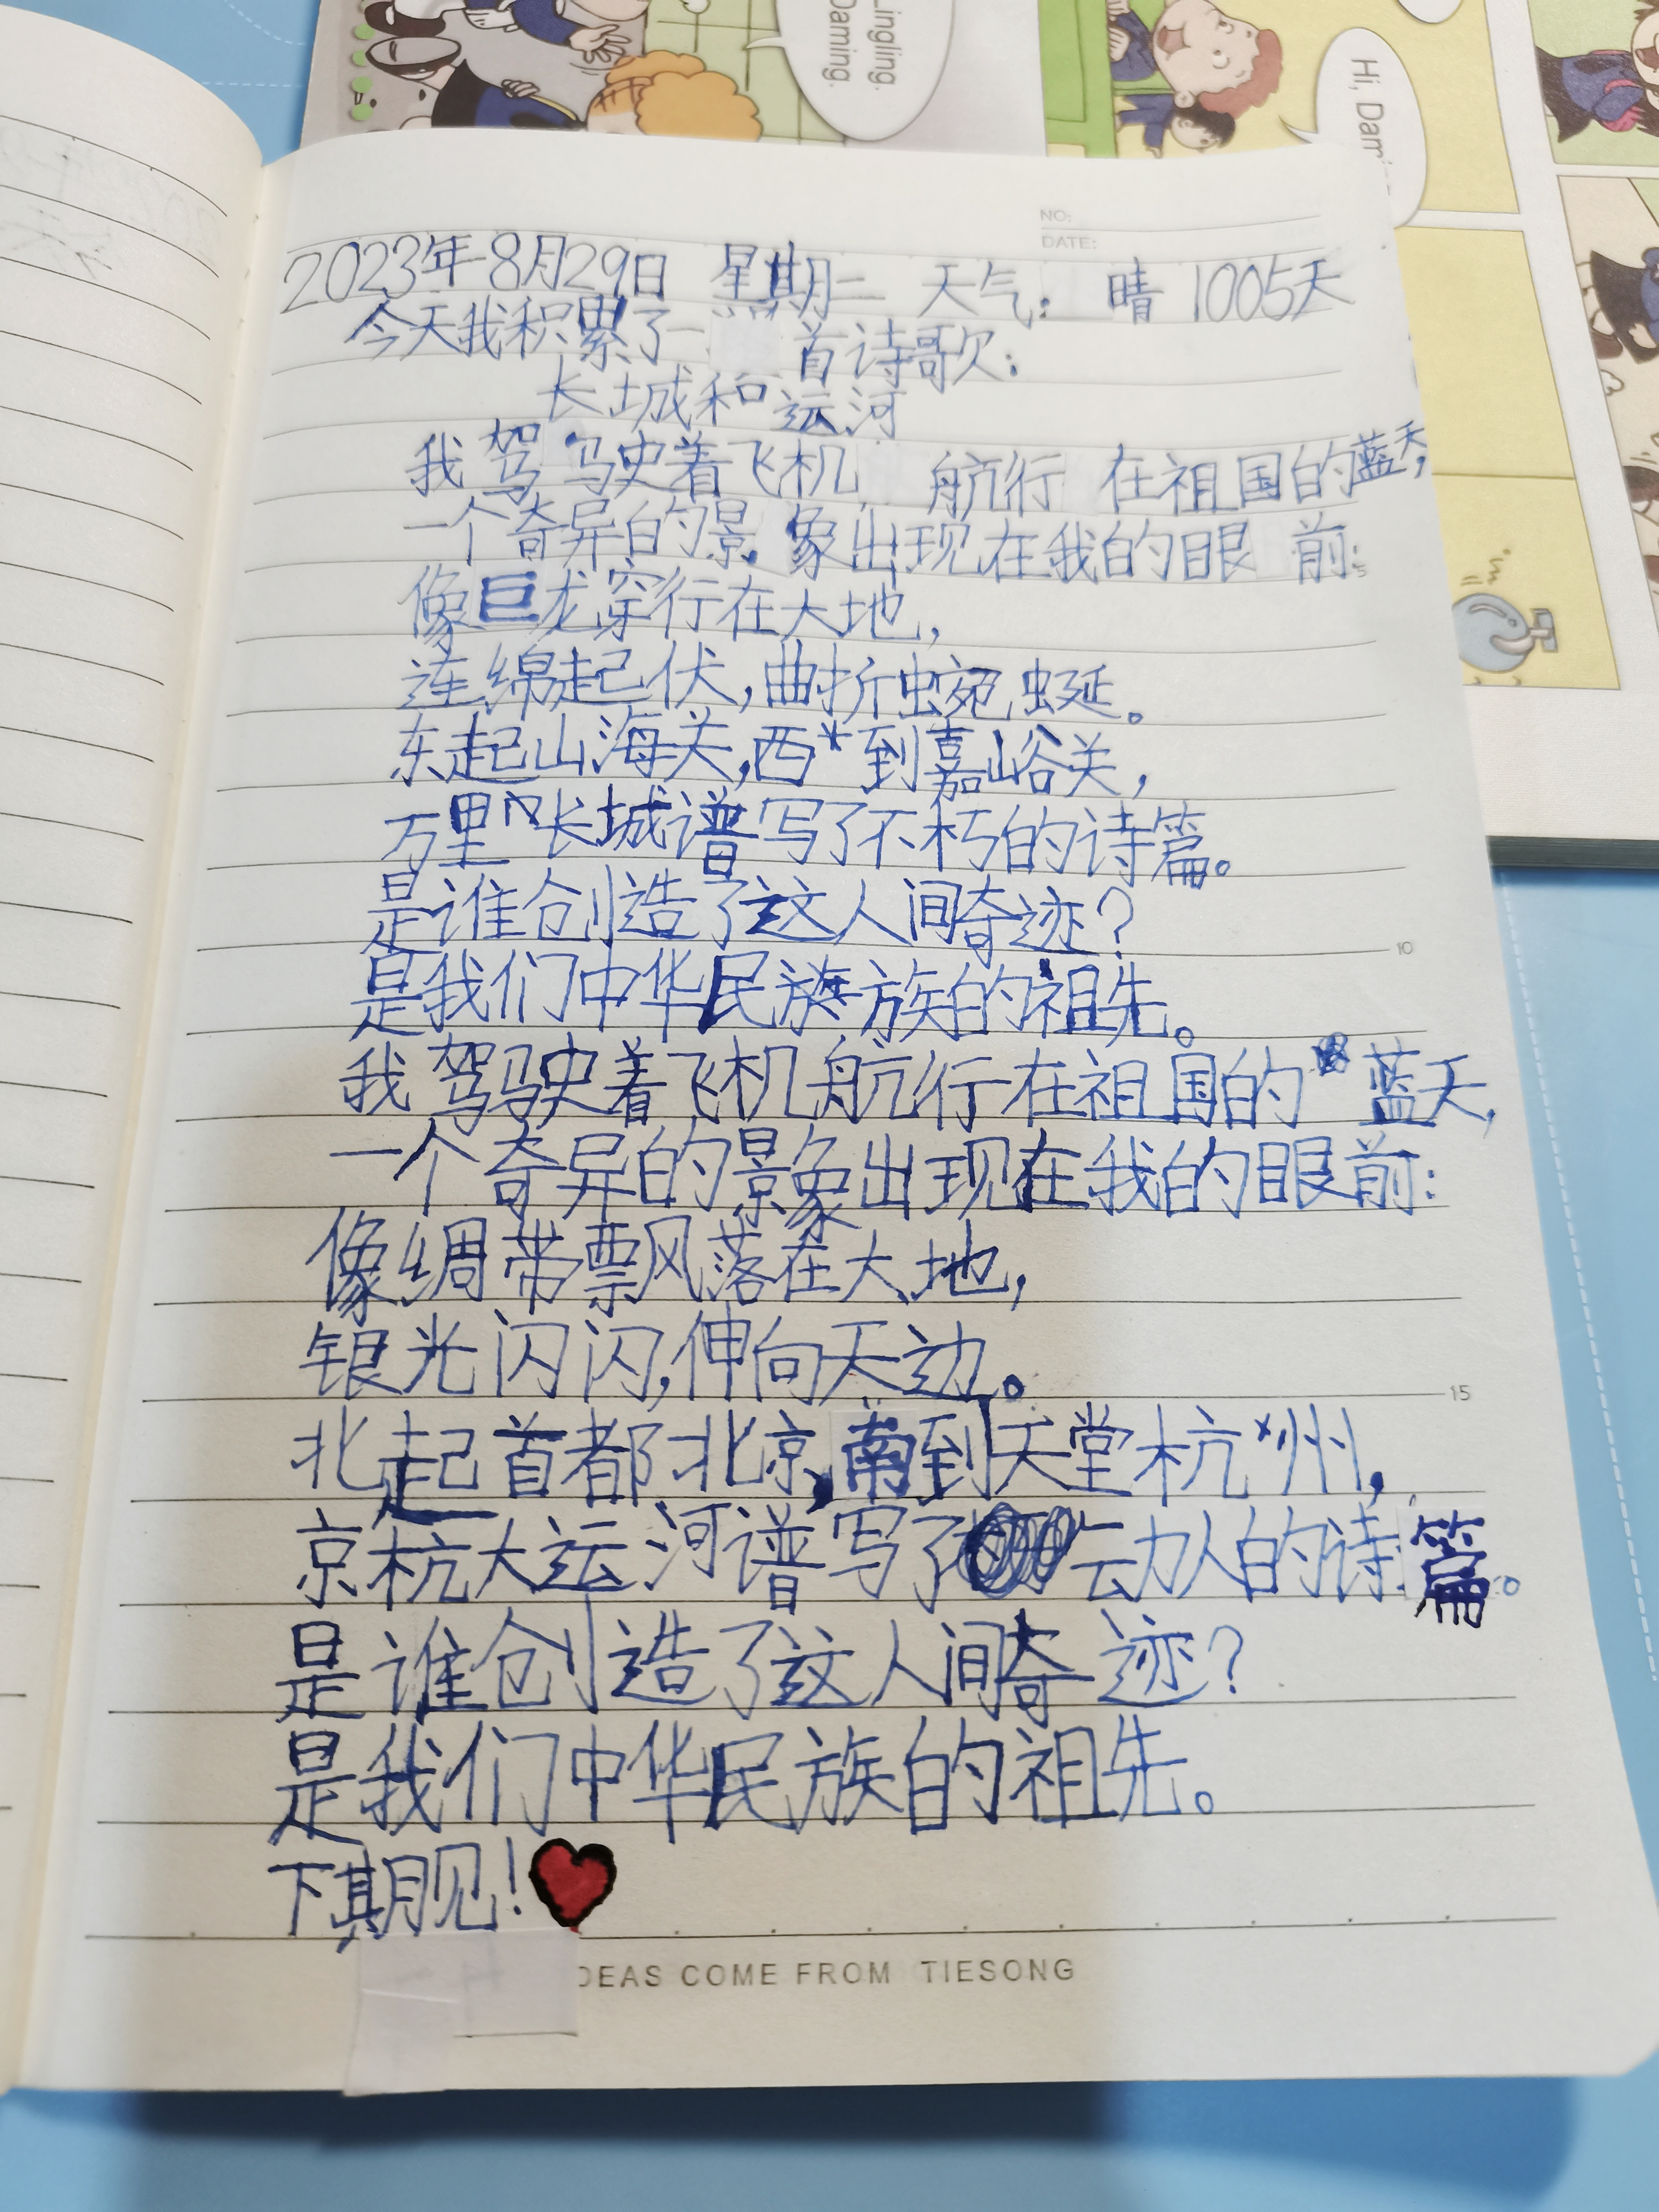 Lingling.
Daming.
Hi, Dam
NO:
DATE:
2023年8月29日 星期二 天气: 晴 1005天
今天我积累了一首诗歌:
长城和运河
我驾驶着飞机航行在祖国的蓝天,
一个奇异的景象出现在我的眼前:
5
像巨龙穿行在大地,
连绵起伏,曲折蜿蜒。
东起山海关,西到嘉峪关,
万里长城谱写了不朽的诗篇。
是谁创造了这人间奇迹?
10
是我们中华民族的祖先。
我驾驶着飞机航行在祖国的蓝天,
一个奇异的景象出现在我的眼前:
像绸带飘落在大地,
银光闪闪,伸向天边。
15
北起首都北京,南到天堂杭州,
京杭大运河谱写了动人的诗篇。
是谁创造了这人间奇迹?
是我们中华民族的祖先。
下期见!
DEAS COME FROM TIESONG